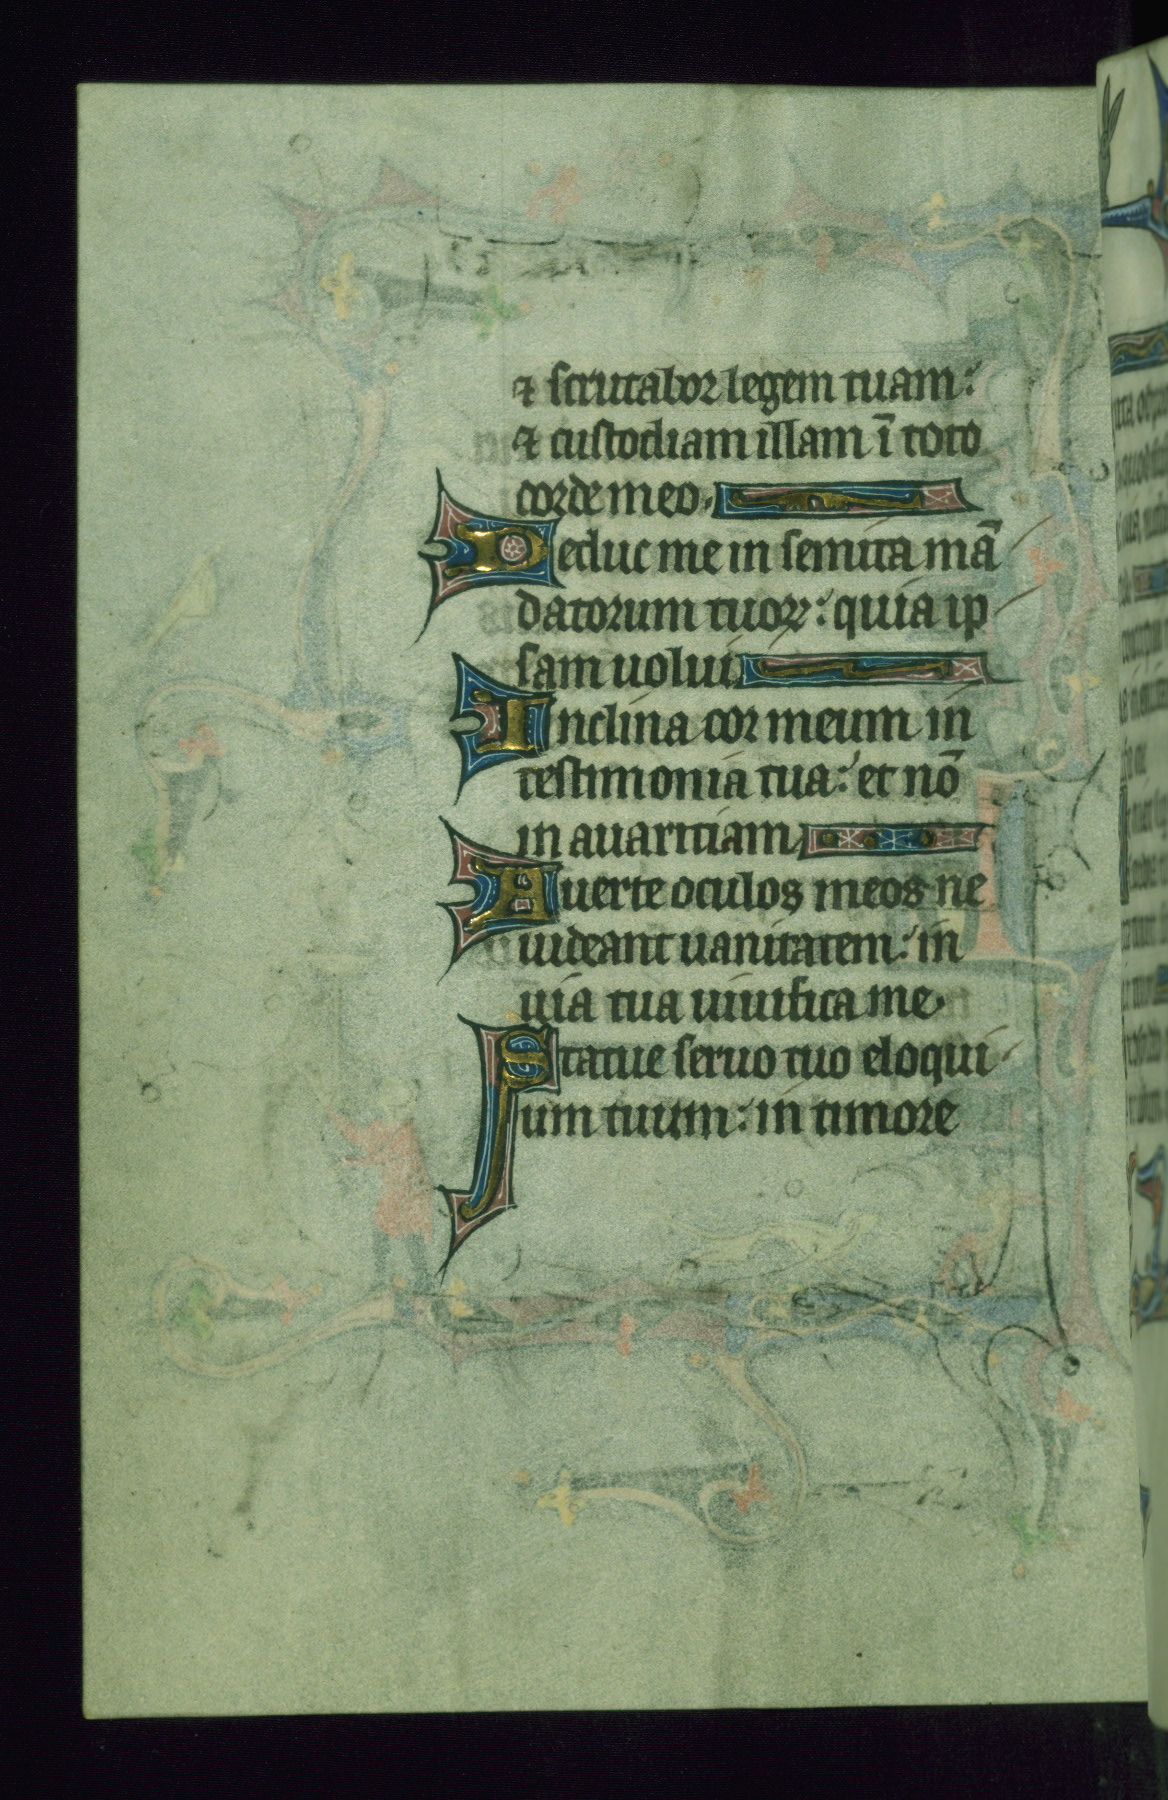 ⁊ scrutabor legem tuam:
⁊ custodiam illam ī toto
corde meo.
Deduc me in semita mā
datorum tuoꝝ: quia ip
sam uolui.
Inclina cor meum in
testimonia tua: et nō
in auaritiam.
Auerte oculos meos ne
uideant uanitatem: in
uia tua uiuifica me.
Statue seruo tuo eloqui
um tuum: in timore